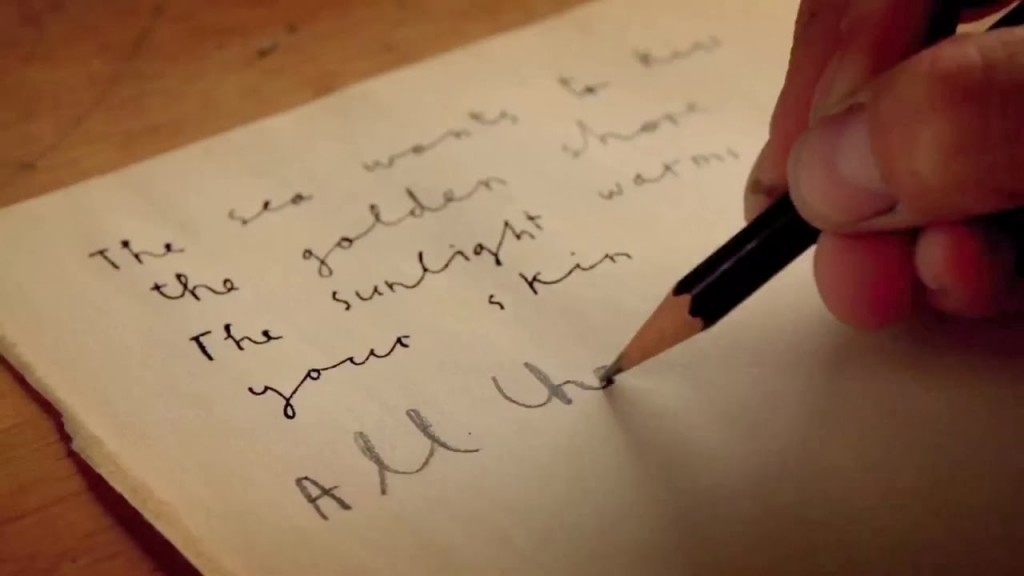 The sea wants to kiss
the golden shore
The sunlight warms
your skin
All the